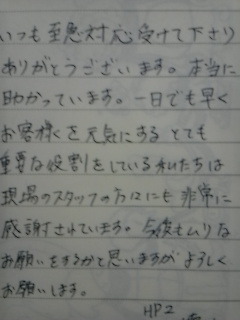 いつも至急対応受けて下さり
ありがとうございます。本当に
助かっています。一日でも早く
お客様を元気にする とても
重要な役割をしている私たちは
現場のスタッフの方にも 非常に
感謝されています。今後もムリな
お願いをするかと思いますが よろしく
お願いします。
HP2